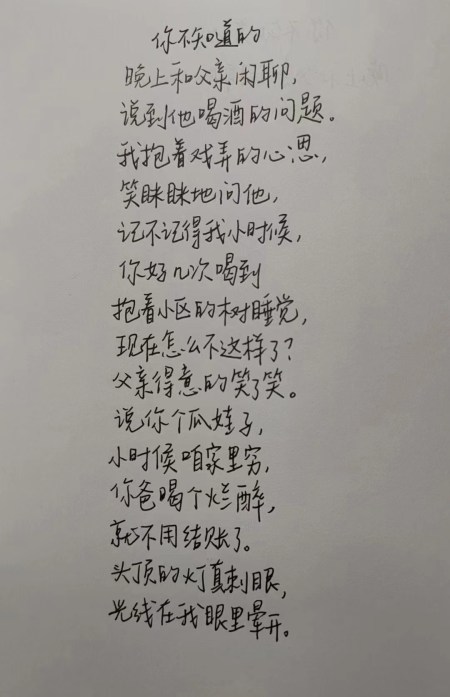 你不知道的
晚上和父亲闲聊，
说到他喝酒的问题。
我抱着戏弄的心思，
笑眯眯地问他，
记不记得我小时候，
你好几次喝到
抱着小区的树睡觉，
现在怎么不这样了？
父亲得意的笑了笑。
说你个瓜娃子，
小时候咱家里穷，
你爸喝个烂醉，
就不用结账了。
头顶的灯真刺眼，
光线在我眼里晕开。